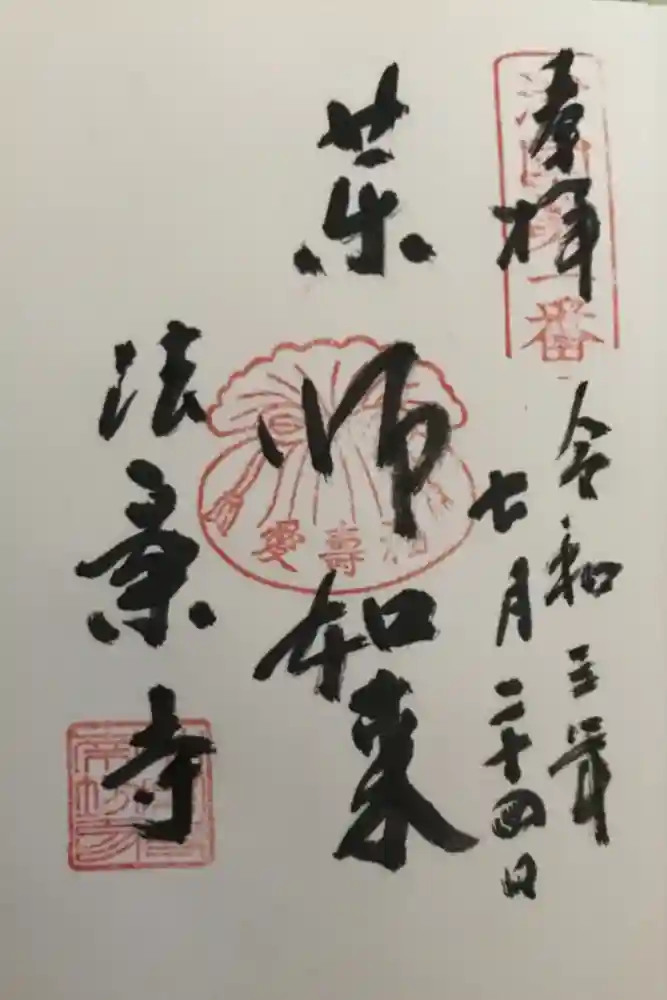 奉拝
一番
令和三年
七月二十四日
薬師如来
愛壽福
法案寺